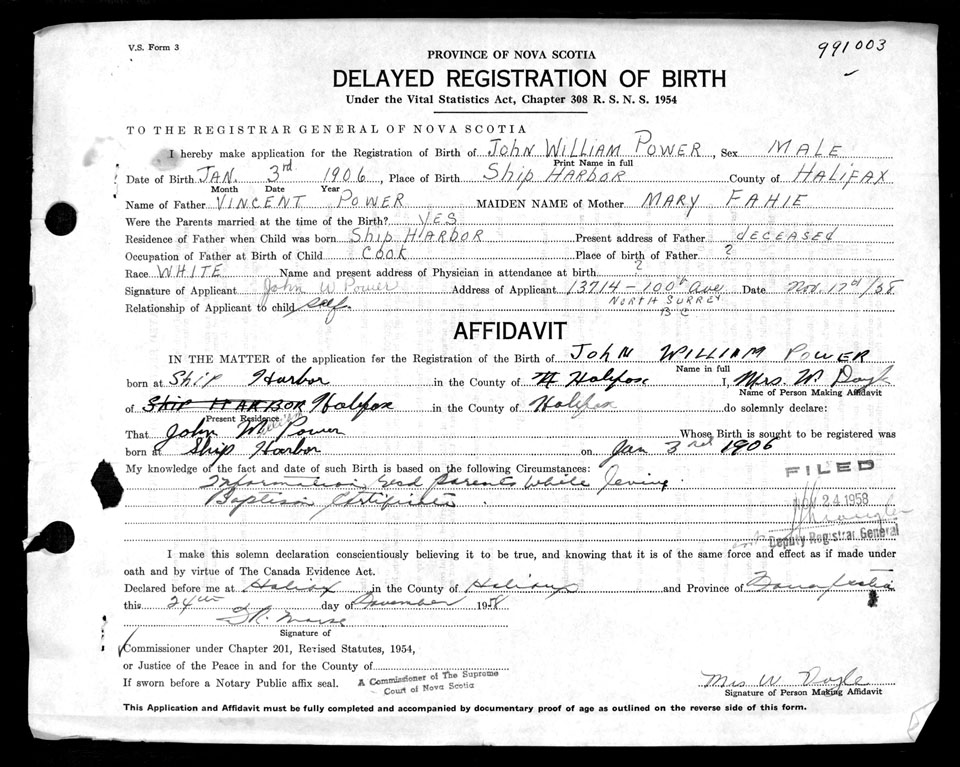 V.S. Form 3
991003
PROVINCE OF NOVA SCOTIA
DELAYED REGISTRATION OF BIRTH
Under the Vital Statistics Act, Chapter 308 R. S. N. S. 1954
TO THE REGISTRAR GENERAL OF NOVA SCOTIA
I hereby make application for the Registration of Birth of JOHN WILLIAM POWER, Sex MALE
Print Name in full
Date of Birth JAN. 3rd 1906, Place of Birth SHIP HARBOR County of HALIFAX
Month Date Year
Name of Father VINCENT POWER MAIDEN NAME of Mother MARY FAHIE
Were the Parents married at the time of the Birth? YES
Residence of Father when Child was born SHIP HARBOR Present address of Father DECEASED
Occupation of Father at Birth of Child COOK Place of birth of Father ?
Race WHITE Name and present address of Physician in attendance at birth ?
Signature of Applicant John W Power Address of Applicant 13714 - 100th Ave Date Nov. 17th/58
NORTH SURREY
Relationship of Applicant to child Self B C
AFFIDAVIT
IN THE MATTER of the application for the Registration of the Birth of JOHN WILLIAM POWER
Name in full
born at Ship Harbor in the County of Halifax I, Mrs. W. Doyle
Name of Person Making Affidavit
of SHIP HARBOR Halifax in the County of Halifax do solemnly declare:
Present Residence
That John William Power Whose Birth is sought to be registered was
born at Ship Harbor on Jan 3rd 1906
My knowledge of the fact and date of such Birth is based on the following Circumstances:
Information Parents While
Baptism Certificate
FILED
24 1958
Deputy Registrar General
I make this solemn declaration conscientiously believing it to be true, and knowing that it is of the same force and effect as if made under
oath and by virtue of The Canada Evidence Act.
Declared before me at Halifax in the County of Halifax and Province of Nova Scotia
this 24th day of November 1958
Signature of
Commissioner under Chapter 201, Revised Statutes, 1954,
or Justice of the Peace in and for the County of
If sworn before a Notary Public affix seal. A Commissioner of The Supreme
Court of Nova Scotia
Mrs W Doyle
Signature of Person Making Affidavit
This Application and Affidavit must be fully completed and accompanied by documentary proof of age as outlined on the reverse side of this form.